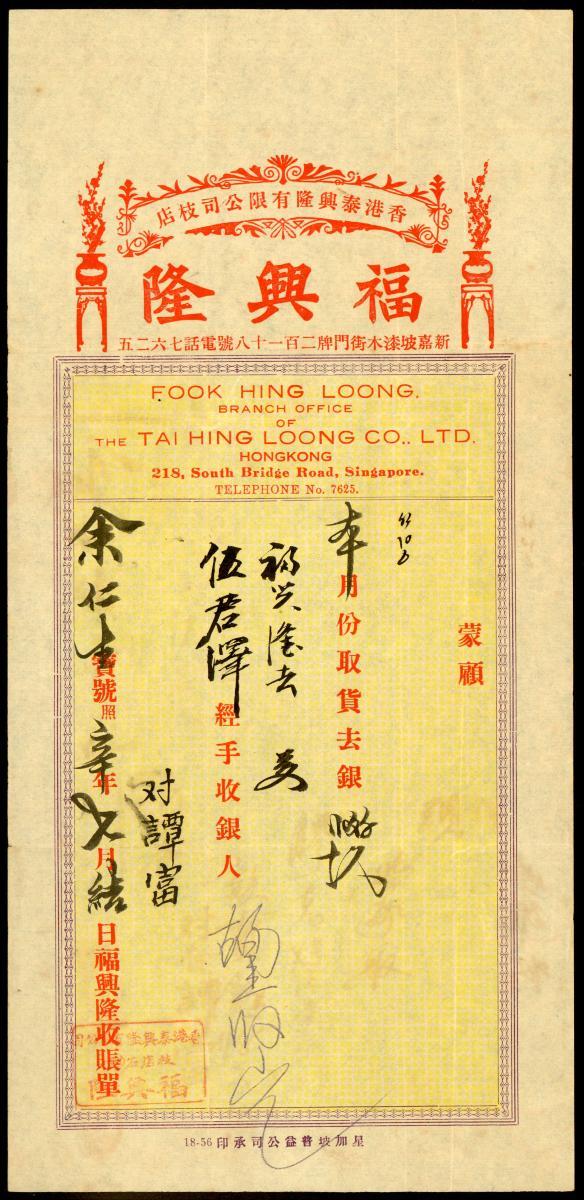 香港泰興隆有限公司枝店
福興隆
新嘉坡漆木街門牌二百一十八號電話七六二五
FOOK HING LOONG.
BRANCH OFFICE
OF
THE TAI HING LOONG CO., LTD.
HONGKONG
218, South Bridge Road, Singapore.
TELEPHONE No. 7625.
蒙顧
本月份取貨去銀
福興隆去
伍君澤經手收銀人
对譚富
余仁生寶號照辛年七月結日福興隆收賬單
香港泰興隆有限公司
枝店
福興隆
星加坡普益公司承印 18-56